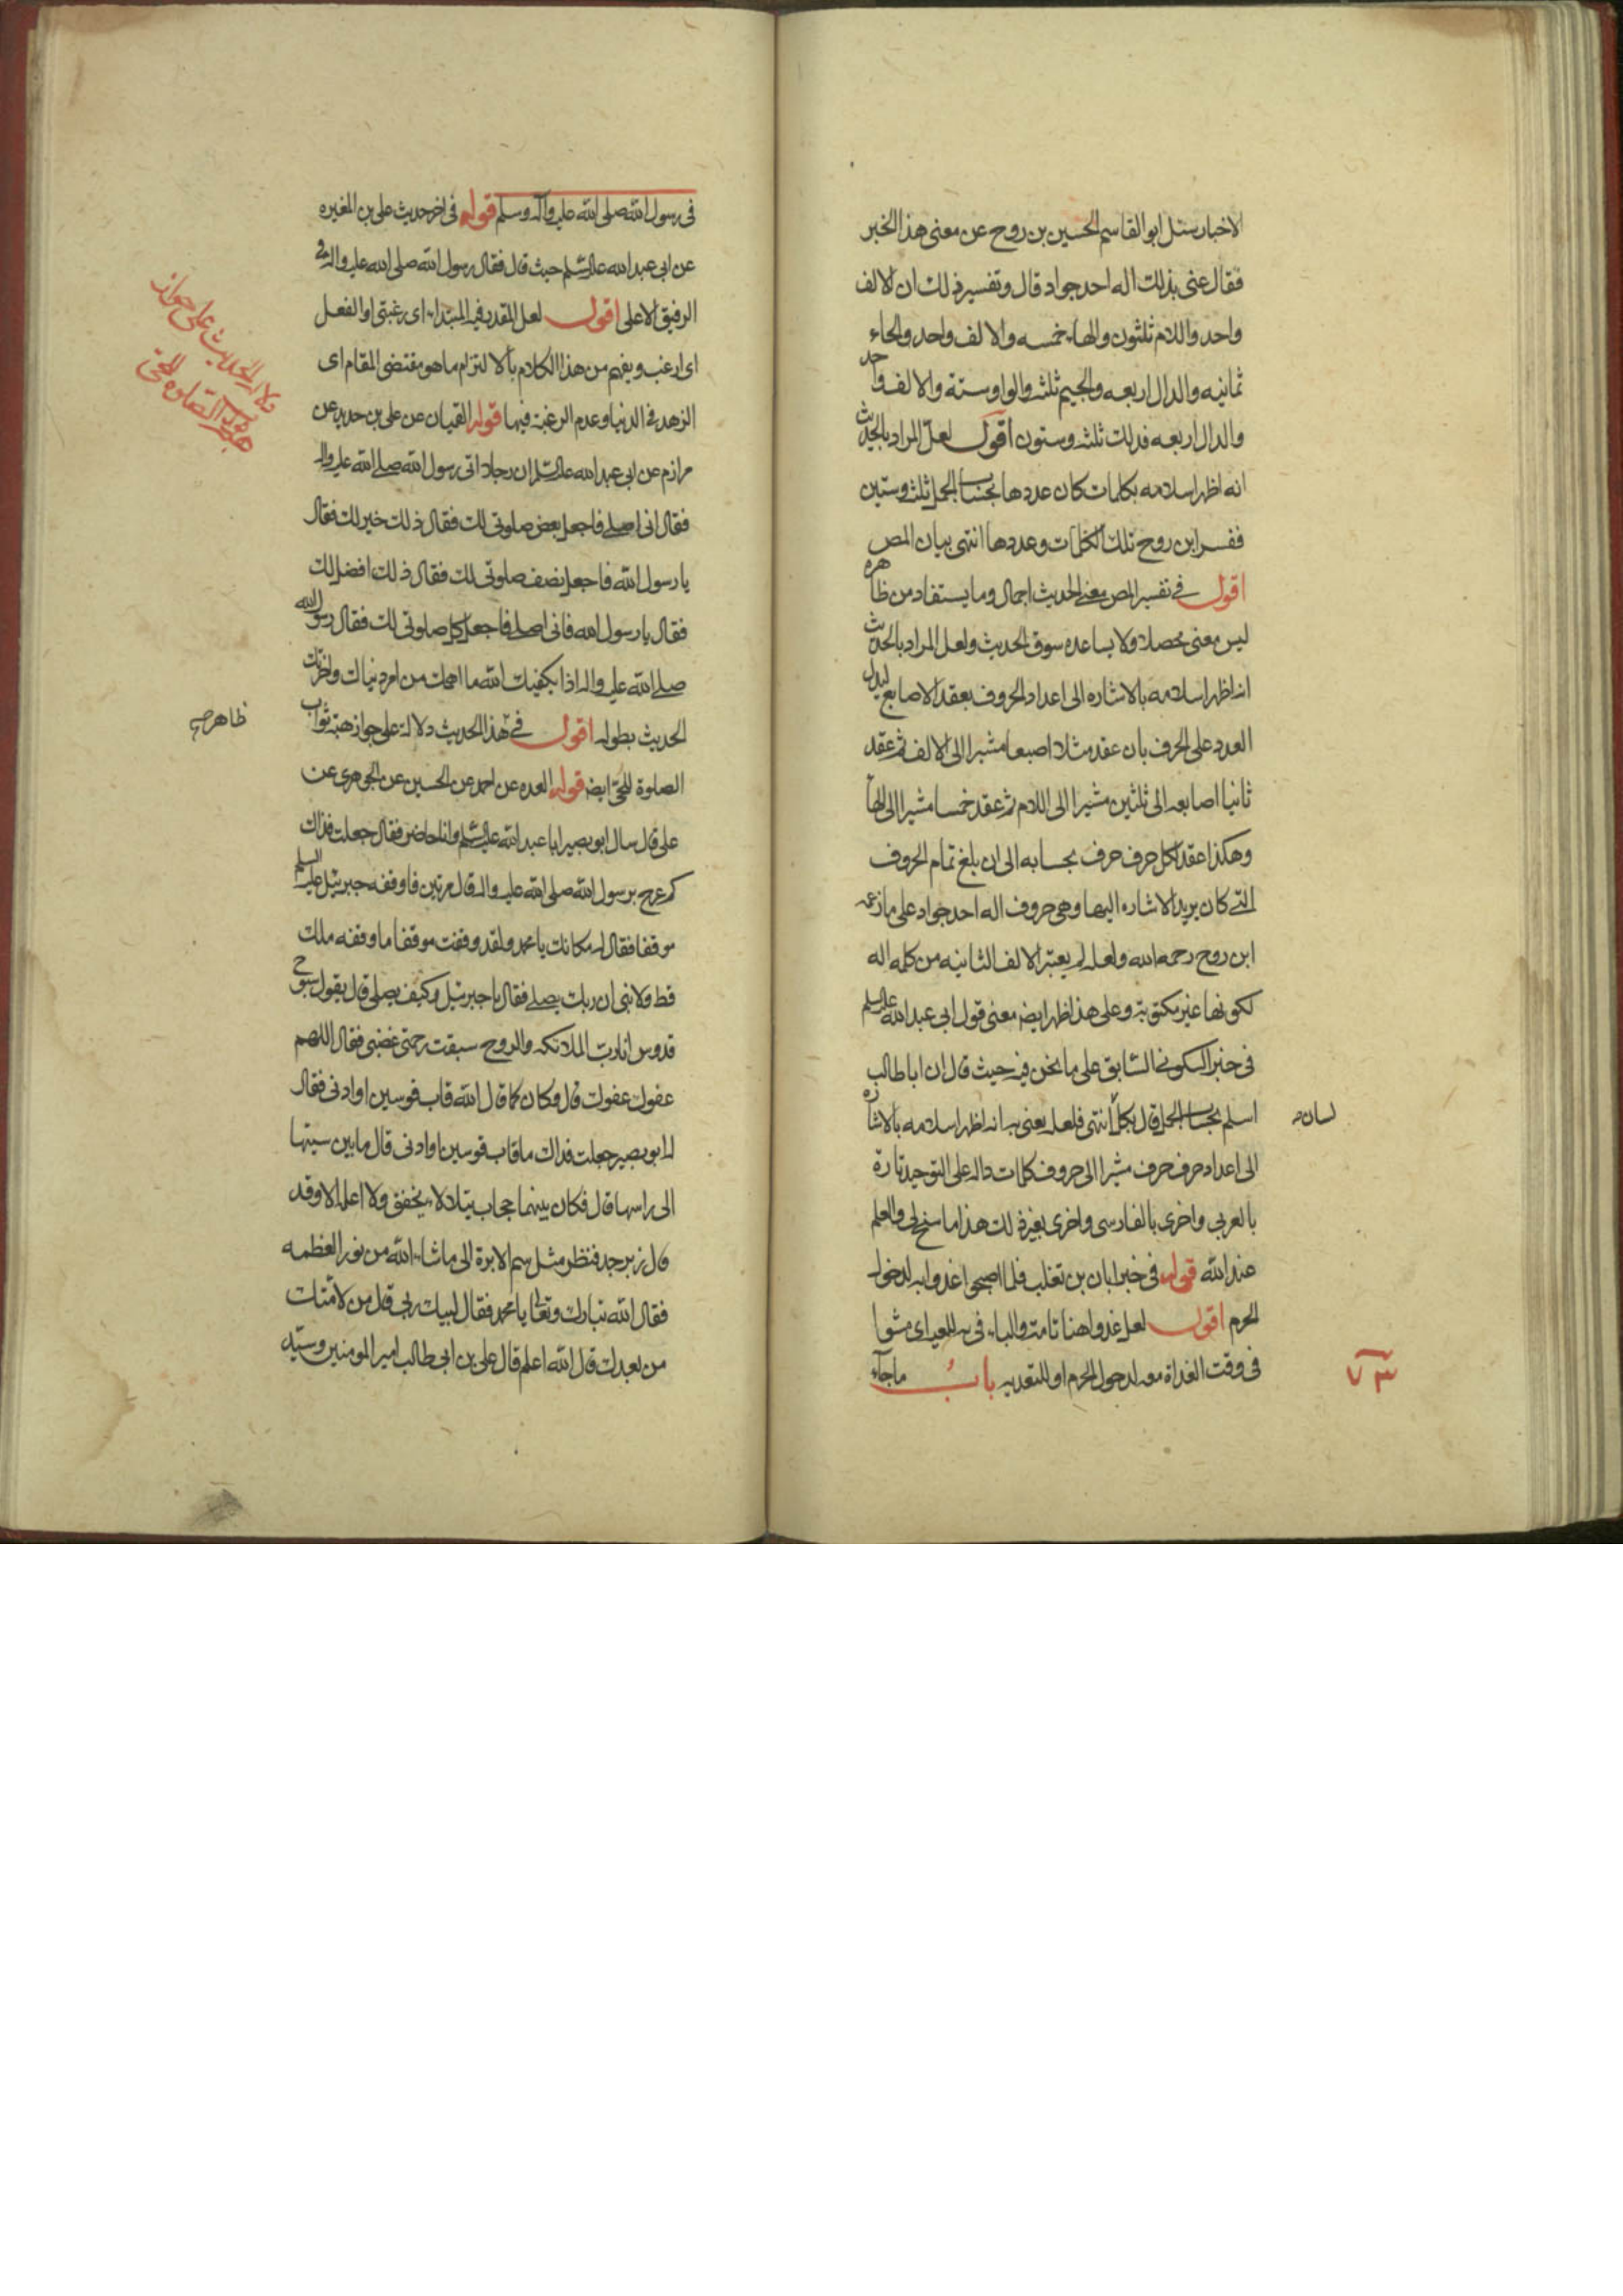 الاخبار سئل ابو القاسم الحسين بن روح عن معنى هذا الخبر
فقال عنى بذلك اله احد جواد قال وتفسير ذلك ان الالف
واحد واللام ثلثون والهاء خمسه والالف واحد والحاء
ثمانيه والدال اربعه والجيم ثلثه والواو ستة والالف واحد
والدال اربعه فذلك ثلثه وستون اقول لعل المراد بالحديث
انه اظهر اسلامه بكلمات كان عددها بحساب الجمل ثلث وستين
ففسر ابن روح تلك الكلمات وعددها انتهى بيان المص
اقول في تفسير المص معنى الحديث اجمال وما يستفاد من ظاهره
ليس معنى محصلا ولا يساعده سوق الحديث ولعل المراد بالحديث
انه اظهر اسلامه بالاشاره الى اعداد الحروف بعقد الاصابع ليدل
العدد على الحرف بان عقد مثلا اصبعا مشيرا الى الالف ثم عقد
ثانيا اصابعه الى ثلثين مشيرا الى اللام ثم عقد خمسا مشيرا الى الهاء
وهكذا عقد لكل حرف حرف بحسابه الى ان بلغ تمام الحروف
التي كان يريد الاشاره اليها وهى حروف اله احد جواد على ما زعمه
ابن روح رحمه الله ولعله لم يعتبر الالف الثانيه من كلمه اله
لكونها غير مكتوبة وعلى هذا ظهر ايضه معنى قول ابى عبد الله عليه السلم
فى خبر السكونى السابق على ما نحن فيه حيث قال ان ابا طالب
اسلم بحساب الجمل قال بكل انتهى فلعله يعنى به انه اظهر اسلامه بالاشاره
لسان
الى اعداد حرف حرف مشيرا الى حروف كلمات داله على التوحيد تارة
بالعربى واخرى بالفارسى واخرى بغير ذلك هذا ما سنح لى والعلم
عند الله قوله فى خبر ابان بن تغلب فلما اصبحوا غدوا به لدخول
الحرم اقول لعل غدوا هنا تامة والباء فى به للمعيه اى مشوا
فى وقت الغداة معه لدخول الحرم او للتعديه باب ما جاء
٧٣
فى رسول الله صلى الله عليه وآله وسلم قوله فى اخر حديث على بن المغيره
عن ابى عبد الله عليه السلم حيث قال فقال رسول الله صلى الله عليه واله فى
الرفيق الاعلى اقول لعل المقدر فيه المبتداء اى رغبتى او الفعل
اى ارغب ويفهم من هذا الكلام بالالتزام ما هو مقتضى المقام اى
الزهد فى الدنيا وعدم الرغبة فيها قوله القميان عن على بن حديد عن
مرازم عن ابى عبد الله عليه السلم ان رجلا اتى رسول الله صلى الله عليه واله
فقال انى اصلى فاجعل بعض صلوتى لك فقال ذلك خير لك فقال
يا رسول الله فاجعل نصف صلوتى لك فقال ذلك افضل لك
فقال يا رسول الله فانى اصلى فاجعل كل صلوتى لك فقال رسول الله
صلى الله عليه واله اذا يكفيك الله ما اهمك من امر دنياك واخرتك
الحديث بطوله اقول فى هذا الحديث دلالة على جواز هبة ثواب
ظاهر
الصلوة للحى ايضه قوله العده عن احمد عن الحسين عن الجوهرى عن
على قال سال ابو بصير ابا عبد الله عليه السلم وانا حاضر فقال جعلت فداك
كم عرج برسول الله صلى الله عليه واله قال مرتين فاوقفه جبرئيل عليه السلم
موقفا فقال له مكانك يا محمد ولقد وقفت موقفا ما وقفه ملك
قط ولا نبى ان ربك يصلى فقال يا جبرئيل وكيف يصلى قال يقول سبوح
قدوس انا رب الملائكه والروح سبقت رحمتى غضبى فقال اللهم
عفوك عفوك قال وكان كما قال الله قاب قوسين او ادنى فقال
له ابو بصير جعلت فداك ما قاب قوسين او ادنى قال ما بين سيتها
الى راسها قال فكان بينهما حجاب يتلالاء يخفق ولا اعلمه الا وقد
قال زبرجد فنظر مثل سم الابرة الى ما شاء الله من نور العظمه
فقال الله تبارك وتعالى يا محمد فقال لبيك ربى قال من لامتك
من بعدك قال الله اعلم قال على بن ابى طالب امير المومنين وسيد
دلالة الحديث على جواز
الصلوة للحى